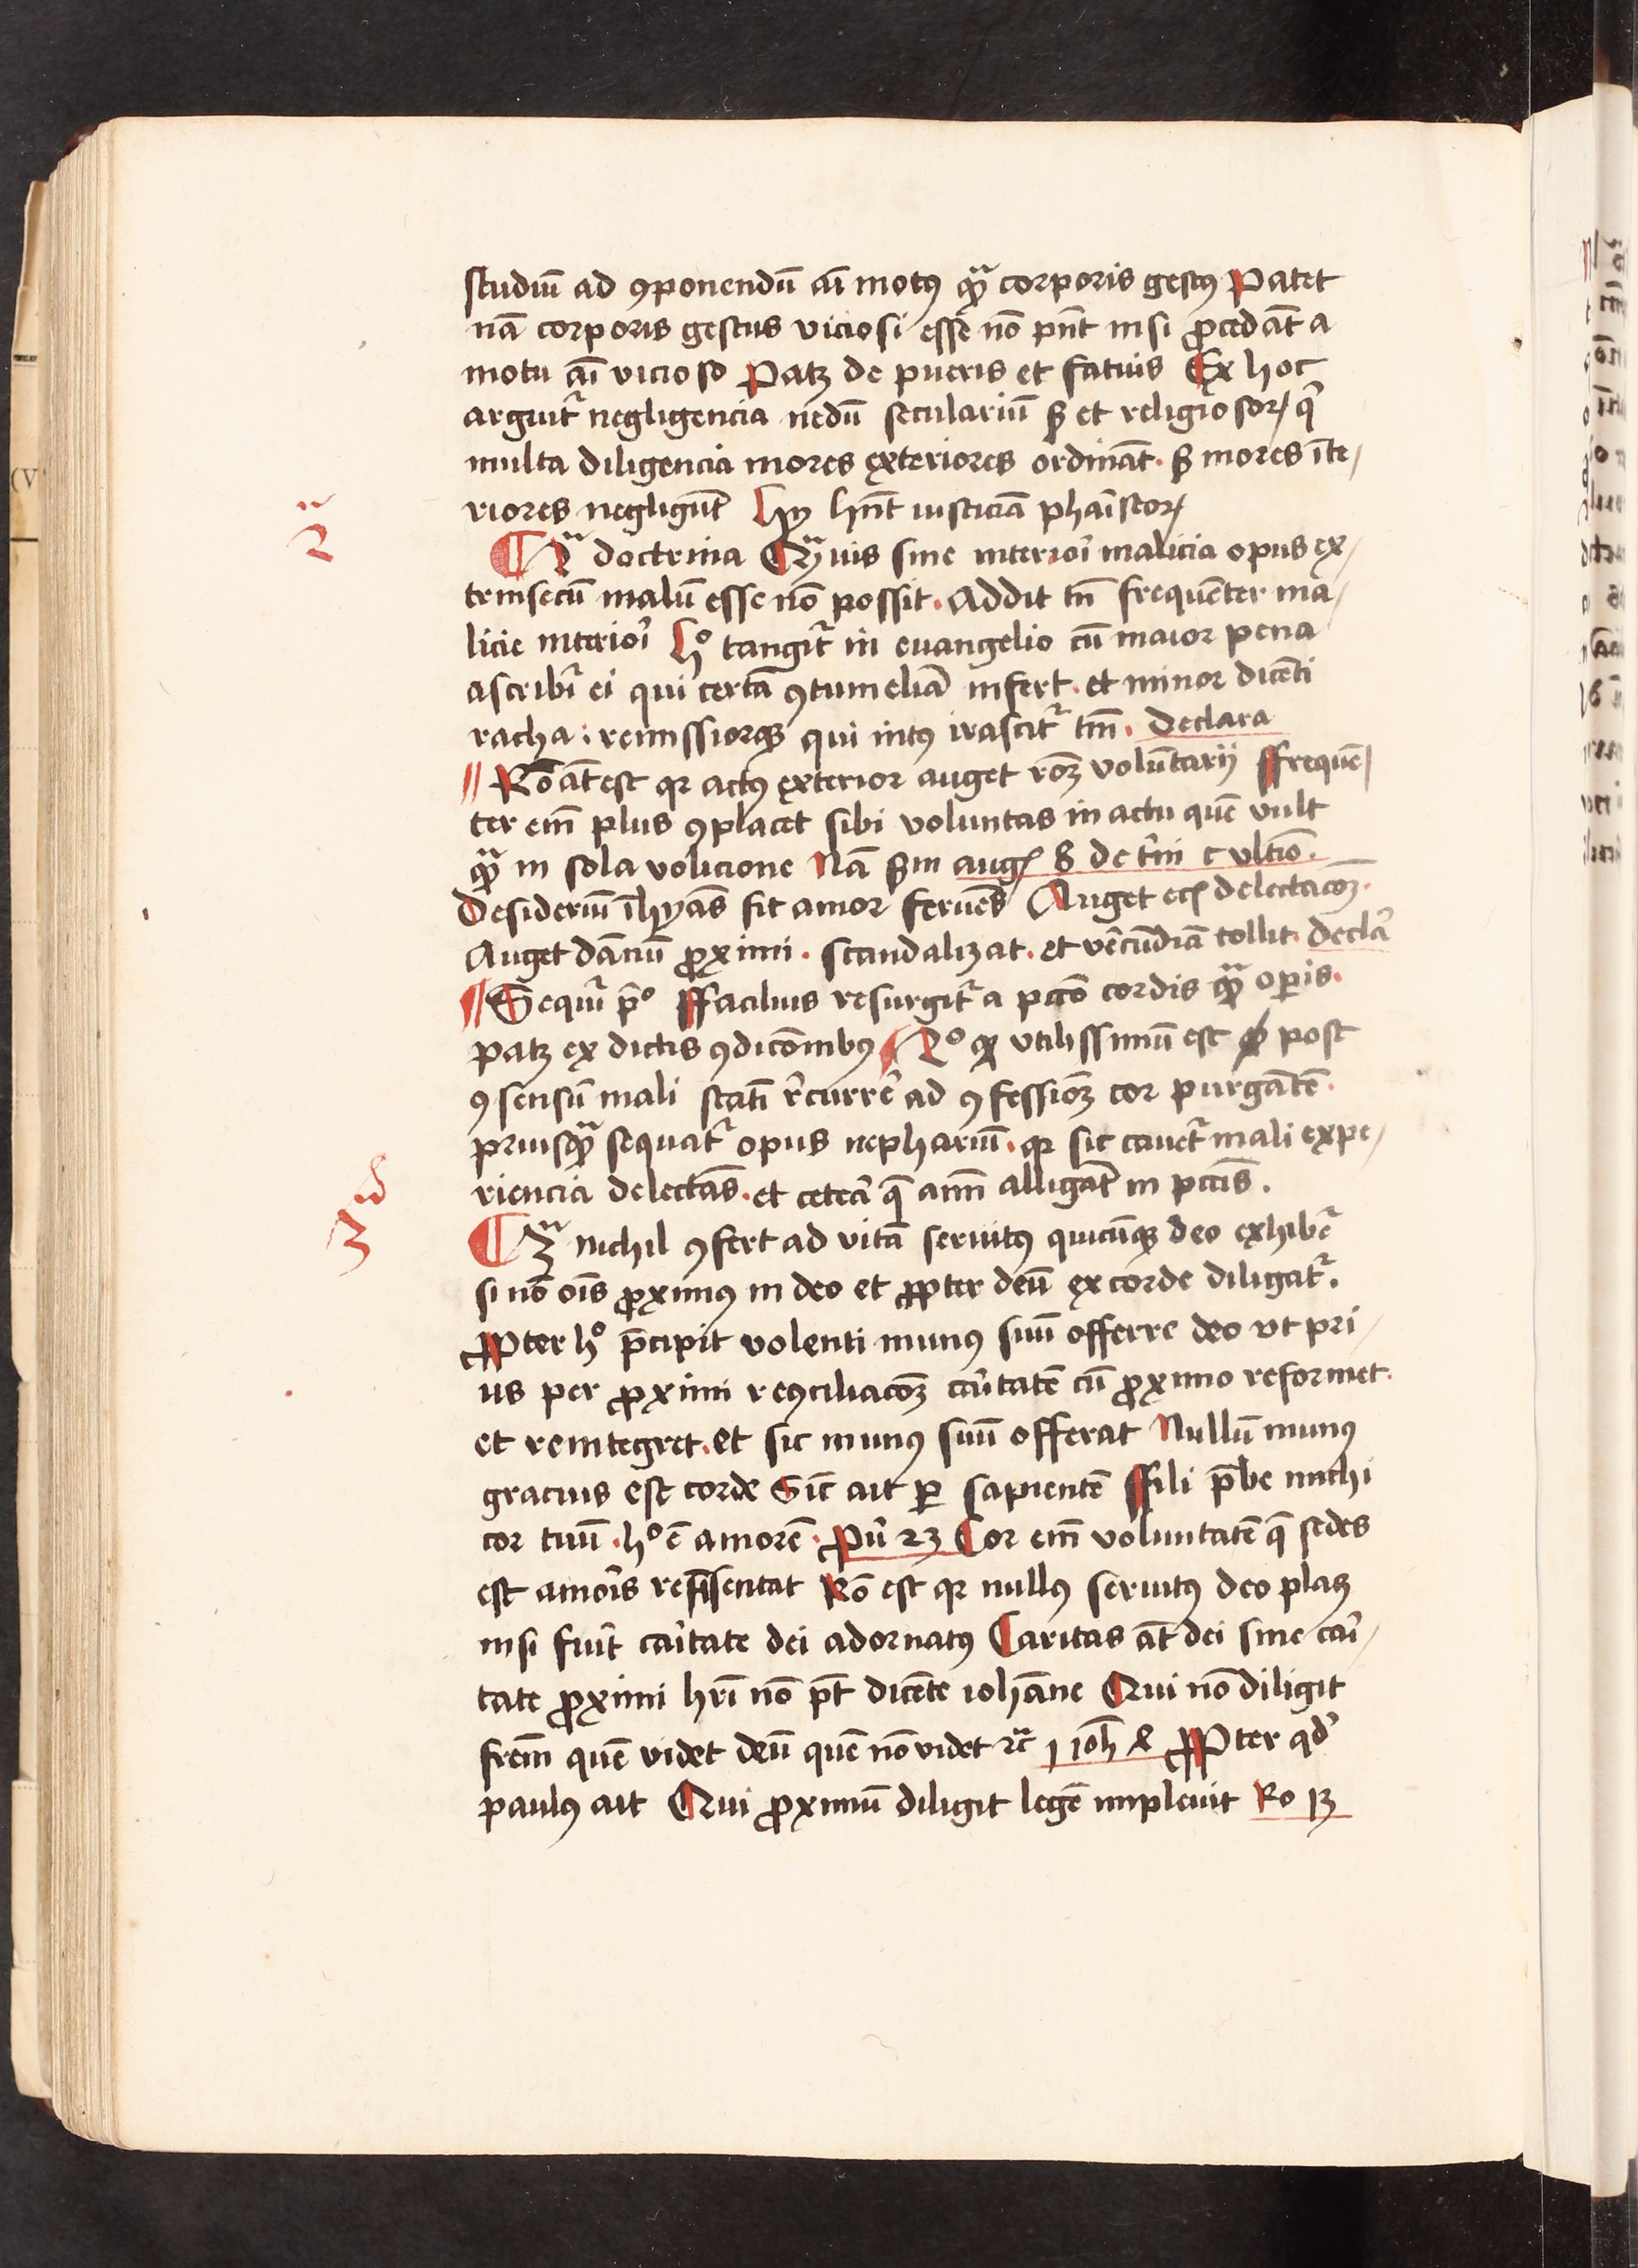 studiū ad ꝯponendū aī motꝰ qᷓ corporis gestꝰ Patet
nā corporis gestus viciosi esse nō pn̄t nisi ꝓcedāt a
motu aī vicioso Patꝫ de pueris et fatuis Ex hoc
arguitᷣ negligencia nedū seculariū sꝫ et religiosoꝝ qͥ
multa diligencia mores exteriores ordināt. sꝫ mores īte/
riores negligūt Hy hn̄t iusticiā phaīseoꝝ
2ᵃ
¶ 2ᵃ doctrina Qᷓuis sine interioī malicia opus ex/
trinsecū malū esse nō possit. Addit tn̄ frequēter ma/
licie interioī hᵒ tangitᷣ in euangelio cū maior pena
ascribiᷣ ei qui certā ꝯtumeliā infert. et minor dicēti
racha: remissiorqꝫ qui intꝰ irascitᷣ tm̄. declara
// Rō āt est qꝛ actꝰ exterior auget rōꝫ voluntarij ffrequē/
ter em̄ plus ꝯplacet sibi voluntas in actu quē vult
qᷓ in sola volicione Nā sꝫm augꝭ 8 de tīni c vltīo.
Desideriū īhyās fit amor feruēs Auget ecꝭ delectacōꝫ.
Auget dānū ꝓximi. scandalizat. et vēcūdiā tollit. declā
// Sequiᷣ pᵒ ffacilius resurgitᷣ a pctō cordis qᷓ opis.
patꝫ ex dictis ꝯdicōnibꝰ 2ᵒ ꝙ vtilissimū est post
ꝯsensū mali statī rͤcurrē ad ꝯfessiōꝫ cor purgātē.
priusqᷓ sequatᷣ opus nephariū. qꝛ sic cauetᷣ mali expe/
riencia delectās. et ceteā q̄ aīm alligāt in pctīs.
3ᵃ
¶ 3ᵃ nichil ꝯfert ad vitā seruitꝰ quicūqꝫ deo exhibeᷣ
si nō oīs ꝓximꝰ in deo et ꝓpter deū ex corde diligatᷣ.
Ꝓpter hᵒ p̄cipit volenti munꝰ suū offerre deo vt pri/
us per ꝓximi reꝯciliacōꝫ caītatē cū ꝓximo reformet.
et reintegret. et sic munꝰ suū offerat Nullū munꝰ
gracius est corde Sic̄ ait ꝑ sapientē ffili p̄be michi
cor tuū. hᵒ ē amorē. Pū 23 Cor em̄ voluntatē q̄ sedes
est amoīs rep̄sentat Rō est qꝛ nullꝰ seruitꝰ deo placꝫ
nisi fuīt caītate dei adornatꝰ Caritas āt dei sine caī/
tate ꝓximi hrī nō p̄t dicēte iohāne Qui nō diligit
frēm quē videt deū quē nō videt ⁊c̄ 1 ioh̄ 4 Ꝓpter qdͥ
paulꝰ ait Qui ꝓximū diligit legē impleuit Ro 13